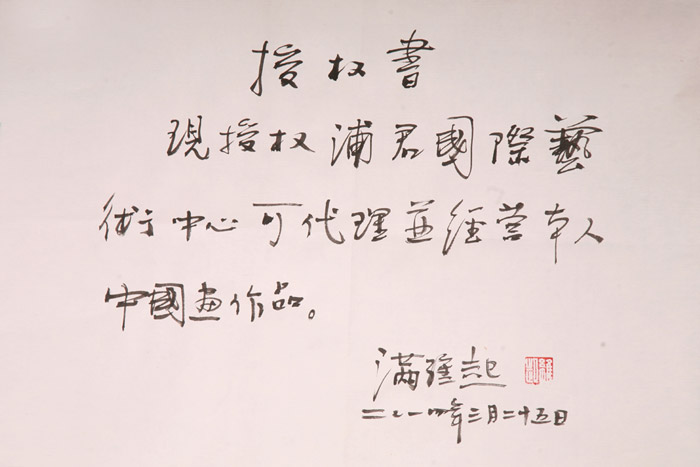 授权書
現授权浦君國際藝
術中心可代理並經营本人
中國画作品。
滿維起
二〇一四年三月二十五日